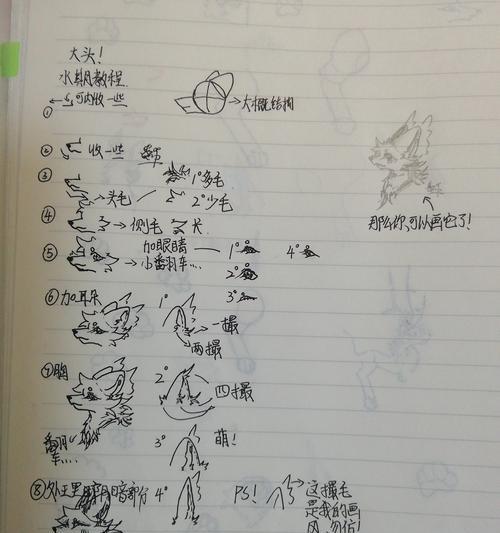 大头!
水棋风教程.
可内收一些
→大概结构
①
② 收一些
③ →头毛 1°多毛
2°少毛
④ →侧毛 长
那么你,可以画它了!
⑤ → 加眼睛 1° 4°
小番羽车... 2°
3°
⑥加耳朵 1° →一撮
→两撮
⑦胸 2° 四撮
3° 萌!
⑧ 暗部分 4° PS! →这撮毛
是我的画
风,勿仿!